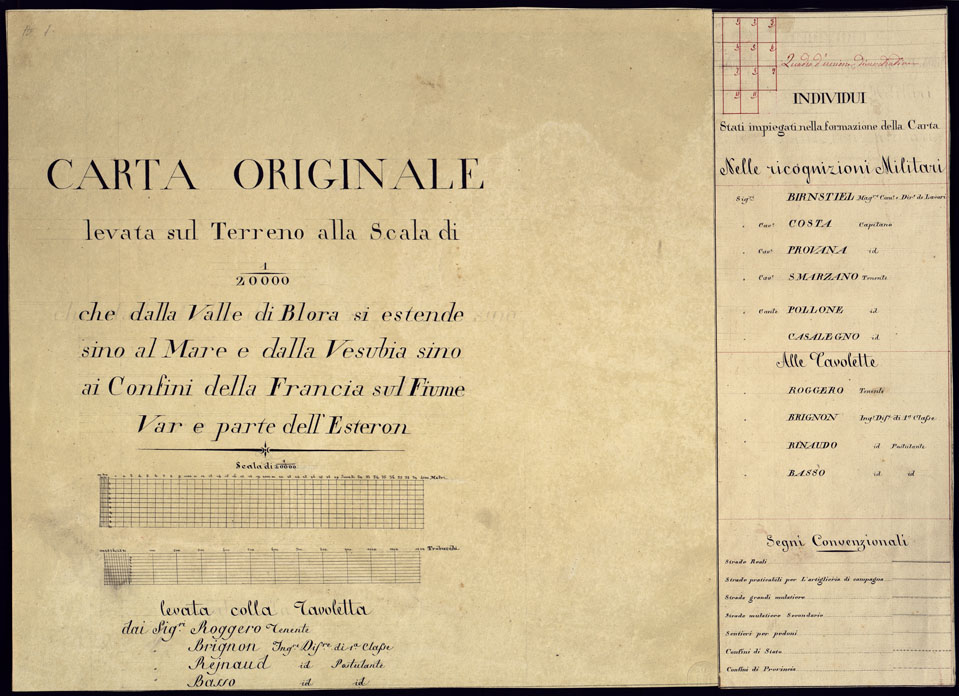 CARTA ORIGINALE
levata sul Terreno alla Scala di
1
20000
che dalla Valle di Blora si estende
sino al Mare e dalla Vesubia sino
ai Confini della Francia sul Fiume
Var e parte dell'Esteron
Scala di 1/20000
Metri
Trabucchi
levata colla Tavoletta
dai Sigri Roggero Tenente
Brignon Ingre Disre di 1a Classe
Rejnaud id Postulante
Basso id id
3 3 3
3 3 2
3 3 7
9 9
Quadro d'unione
INDIVIDUI
Stati impiegati nella formazione della Carta
Nelle ricognizioni Militari
Sigri BIRNSTIEL Magre de Lavori
Cavre COSTA Capitano
Cavre PROVANA id
Cavre S MARZANO Tenente
Conte POLLONE id
CASALEGNO id
Alle Tavolette
ROGGERO Tenente
BRIGNON Ingre Disre di 1a Classe
RINAUDO id Postulante
BASSO id id
Segni Convenzionali
Strade Reali
Strade praticabili per L'artiglieria di campagna
Strade grandi mulatiere
Strade mulatiere Secondarie
Sentieri per pedoni
Confini di Stato
Confini di Provincia